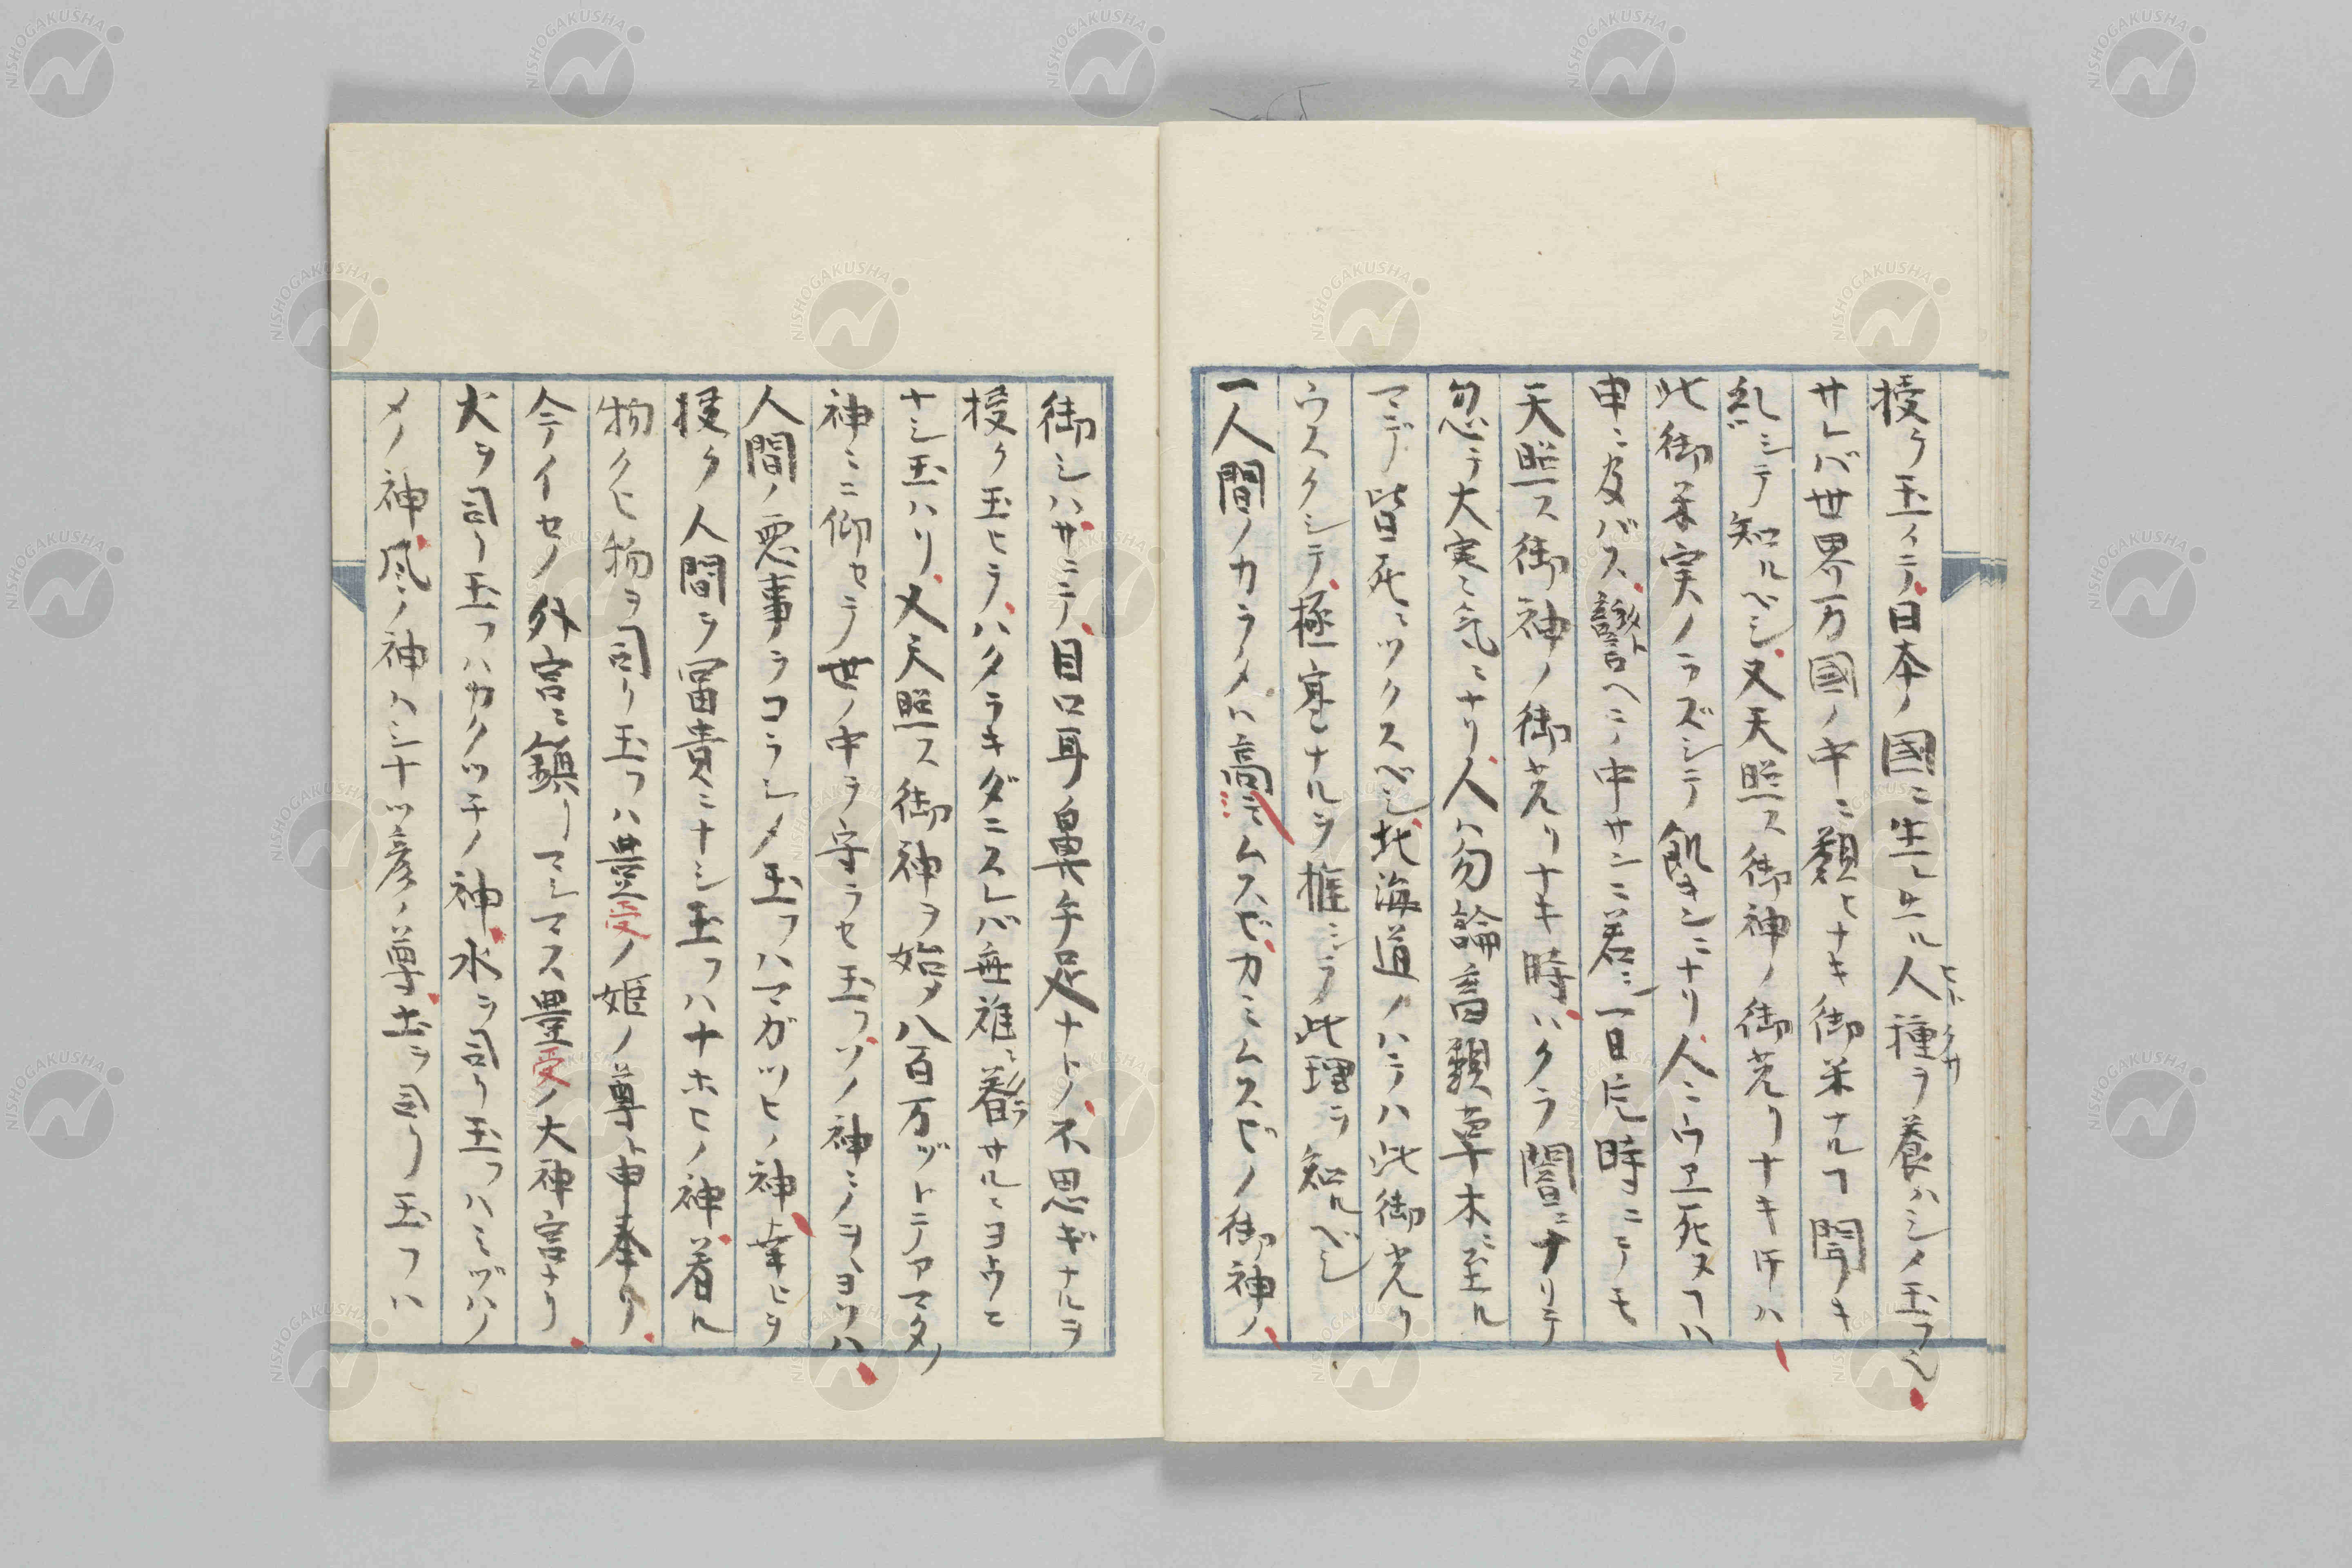 授ケ玉イテ日本ノ國ニ生レ出ル人種ヲ養ハシメ玉フヘシ
サレバ世界万國ノ中ニ類ヒナキ御米ナルヿ聞ノキ
乱シテ知ルベシ又天照ス御神ノ御光リナキ時ハ
此御米実ノラズシテ飢キンニナリ人ミウヱ死ヌヿハ
申ニ及バス譬ヘニ中サンニ若シ一日片時ニテモ
天照ス御神ノ御光リナキ時ハクラ闇ニナリテ
忽テ大寒ミ気ニナリ人ハ勿論畜類草木ニ至ル
マデ皆死ニツクスベシ北海道ノハテハ此御光リ
ウスクシテ極寒ナルヲ推シテ此理ヲ知ルベシ
一人間ノカラダハ高ミムスビカミムスビノ御神ノ
御シハサニテ目口耳鼻手足ナトノ不思ギナルヲ
授ケ玉ヒテハタラキダニスレバ無難ニ暮サルヽヨウニ
ナシ玉ハリ又天照ス御神ヲ始メ八百万ヅトテアマタノ
神ミニ仰セラ世ノ中ヲ守ラセ玉フソノ神ミノヲヨソハ
人間ノ悪事ヲコラシメ玉フハマガツヒノ神幸ヒヲ
授ケ人間ヲ冨貴ニナシ玉フハナホヒノ神着ル
物クヒ物ヲ司リ玉フハ豊受ノ姫ノ尊ト申奉リ
今イセノ外宮ニ鎮リマシマス豊受ノ大神宮ナリ
火ヲ司リ玉フハカクツチノ神水ヲ司リ玉フハミヅハノ
メノ神風ノ神ハシナツ彦ノ尊土ヲ司リ玉フハ